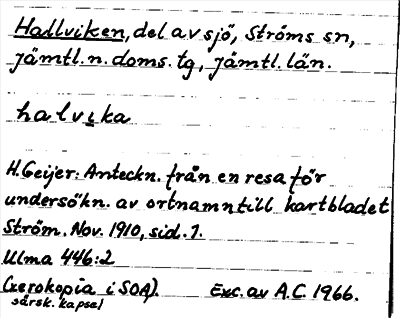 Hallviken, del av sjö, Ströms sn,
Jämtl. n. doms. tg, Jämtl. län.
halvika
H. Geijer: Anteckn. från en resa för
undersökn. av ortnamn till kartbladet
Ström. Nov. 1910, sid. 7.
Ulma 446:2
(xerokopia i SOA). Exc. av A.C. 1966.
särsk. kapsel